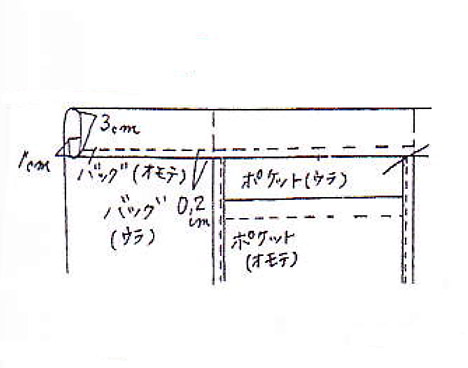 3cm
1cm
バッグ(オモテ)
ポケット(ウラ)
バッグ
(ウラ)
0.2
cm
ポケット
(オモテ)